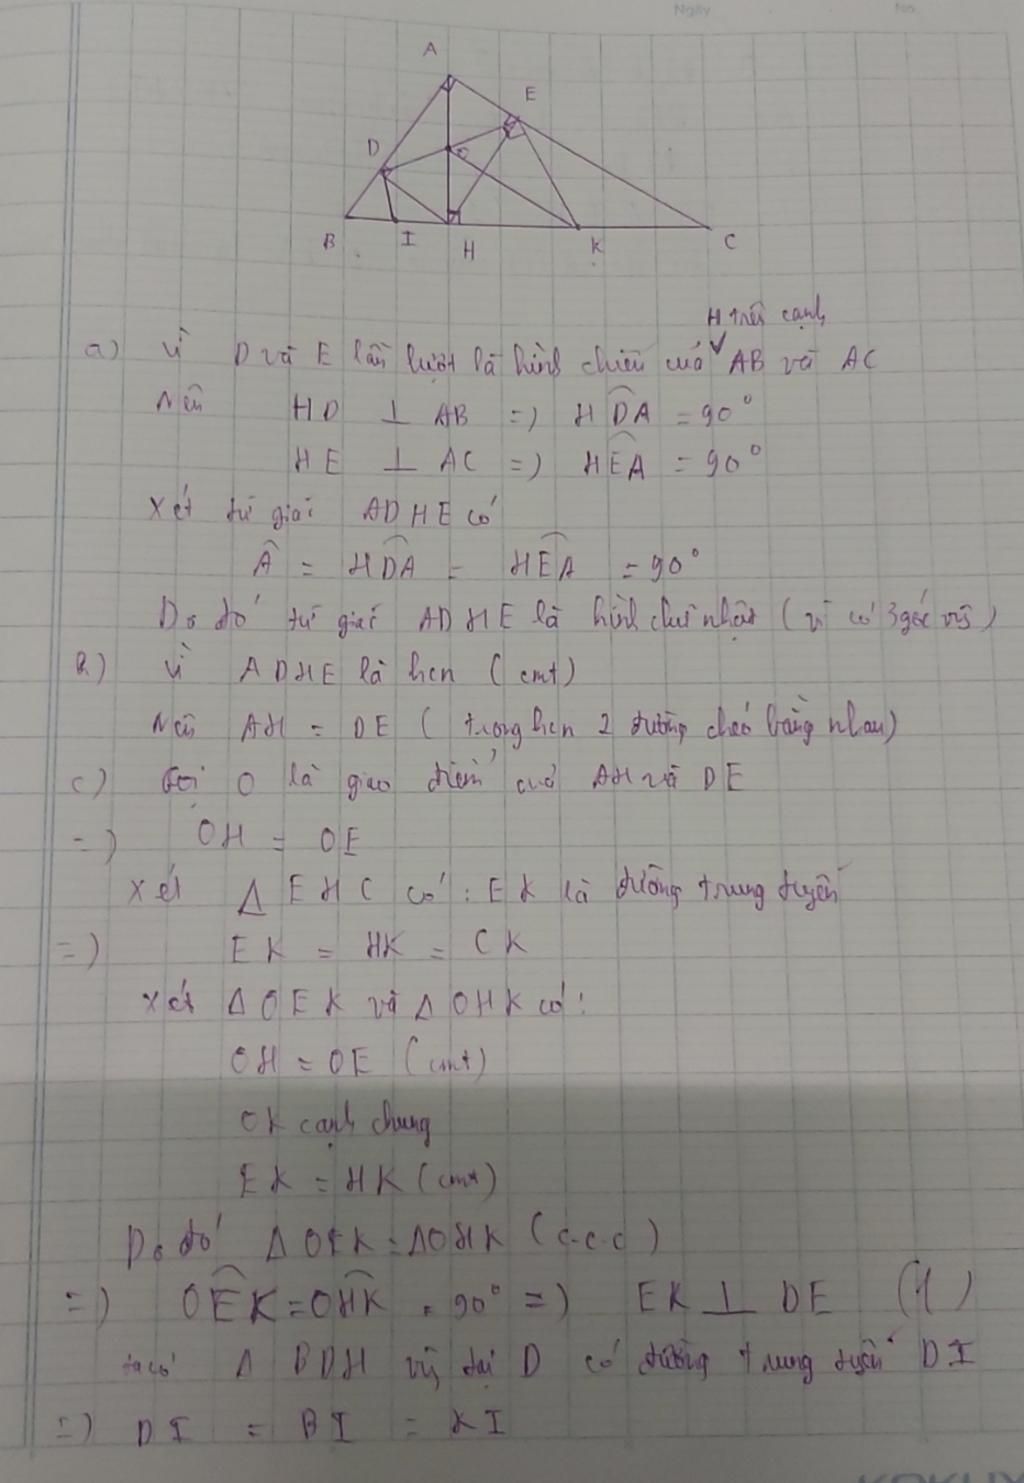 Ngày No.
A
E
D
O
B I H K C
H trên cạnh
a) Vì D và E lần lượt là hình chiếu của AB và AC
Nên HD ⊥ AB => HDA = 90°
HE ⊥ AC => HEA = 90°
Xét tứ giác ADHE có
Â = HDA = HEA = 90°
Do đó tứ giác ADHE là hình chữ nhật (vì có 3 góc vg)
b) Vì ADHE là hcn (cmt)
Nên AH = DE (trong hcn 2 đường chéo bằng nhau)
c) Gọi O là giao điểm của AH và DE
=> OH = OE
Xét Δ EHC có : EK là đường trung tuyến
=> EK = HK = CK
Xét Δ OEK và Δ OHK có :
OH = OE (cmt)
OK cạnh chung
EK = HK (cmt)
Do đó Δ OEK = ΔOHK (c.c.c)
=> OEK = OHK = 90° => EK ⊥ DE (1)
ta có Δ BDH vg tại D có đường trung tuyến DI
=> DI = BI = KI